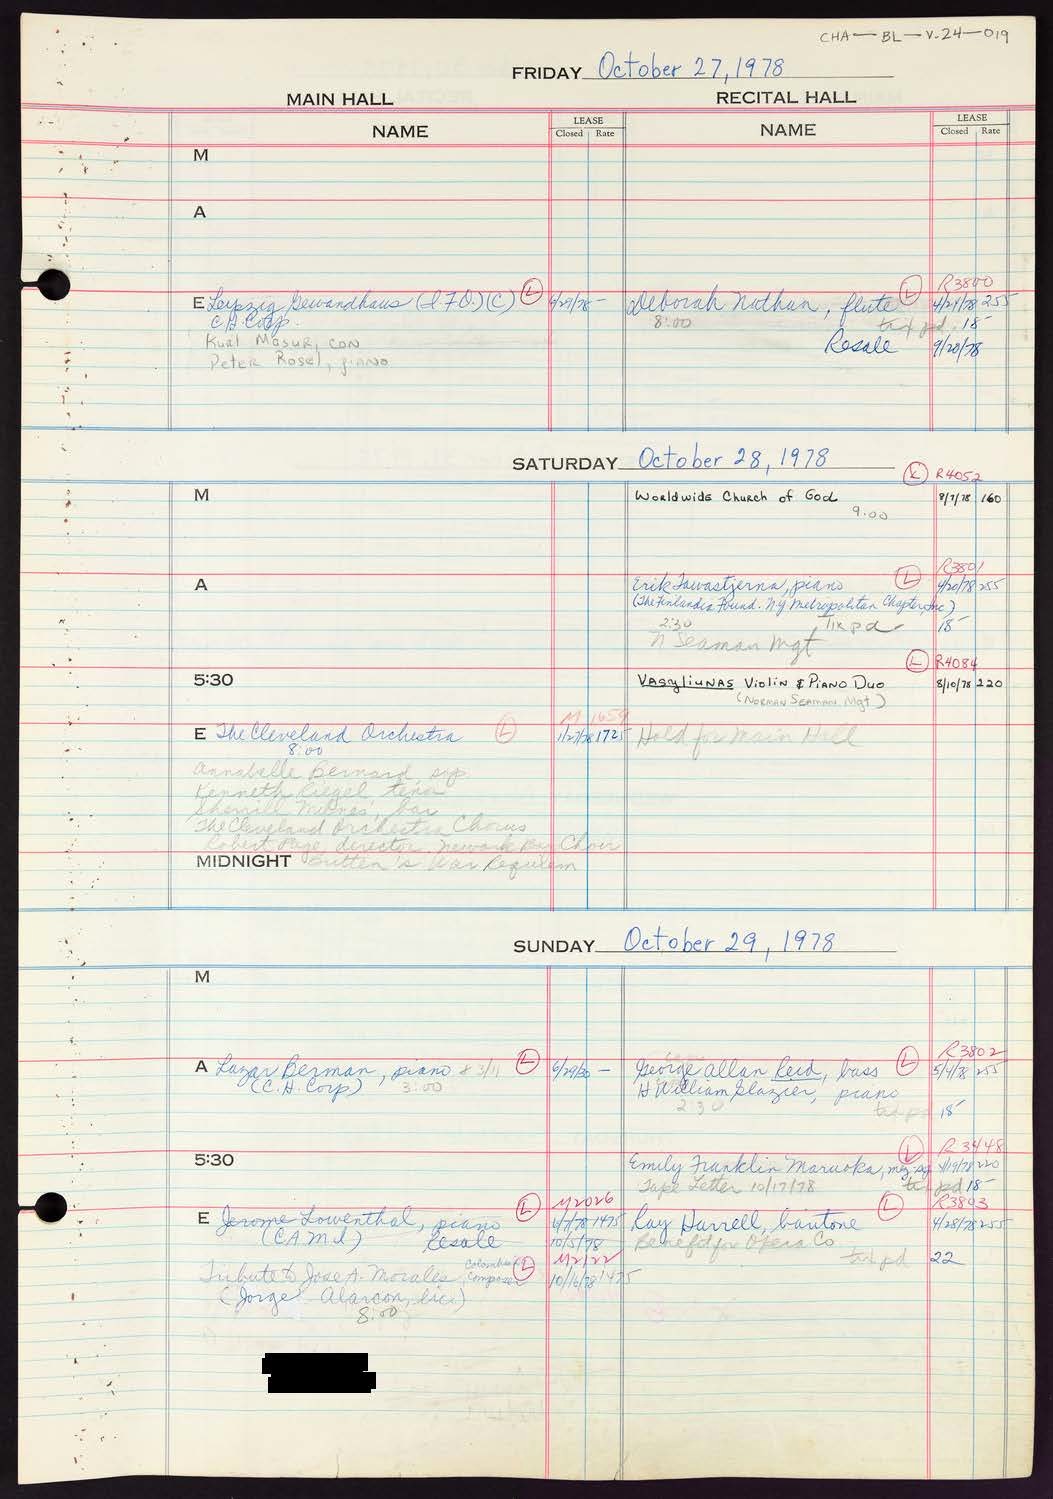 CHA — BL — V.24 — 019
FRIDAY October 27, 1978
MAIN HALL RECITAL HALL
NAME LEASE Closed Rate NAME LEASE Closed Rate
M
A
R3800
E Leipzig Gewandhaus (I.F.O.) (C) L 6/29/78 — Deborah Nathan, flute L 4/21/78 255
C.H. Corp. 8:00 tax pd. 18-
Kurt Masur, con Resale 9/20/78
Peter Rosel, piano
SATURDAY October 28, 1978
L R4052
M Worldwide Church of God 8/7/78 160
9:00
R3801
A Erik Tawastjerna, piano L 4/20/78 255
(The Finlandia Found. NY Metropolitan Chapter, Inc)
2:30 Tix pd 18-
N Seaman Mgt
L R4084
5:30 Vasyliunas Violin & Piano Duo 8/10/78 220
(Norman Seaman Mgt)
M 1659
E The Cleveland Orchestra L 1/27/78 1725 Hold for Main Hall
8:00
Annabelle Bernard sop
Kenneth Riegel, tenor
Sherrill Milnes, bar
The Cleveland Orchestra Chorus
Robert Page, director. Newark Boy Choir
MIDNIGHT Britten's War Requiem
SUNDAY October 29, 1978
M
R3802
A Lazar Berman, piano & 3/11 L 6/29/ — George Allan Reid, bass L 5/4/78 255
(C.H. Corp) 3:00 H William Glazier, piano
2:30 tax pd 18-
L R3448
5:30 Emily Franklin Maruoka, mez-sop 220
Tape Letter 10/17/78 tax pd 18-
L M2026 L R3803
E Jerome Lowenthal, piano 6/7/78 1475 Ray Harrell, baritone 4/28/78 255
(CAMI) Resale 10/5/78 Benefit for Opera Co
M2122 tax pd 22
Tribute to Jose A. Morales, Colombian Composer L 10/16/78 1475
(Jorge Alarcon, lic.)
8:00